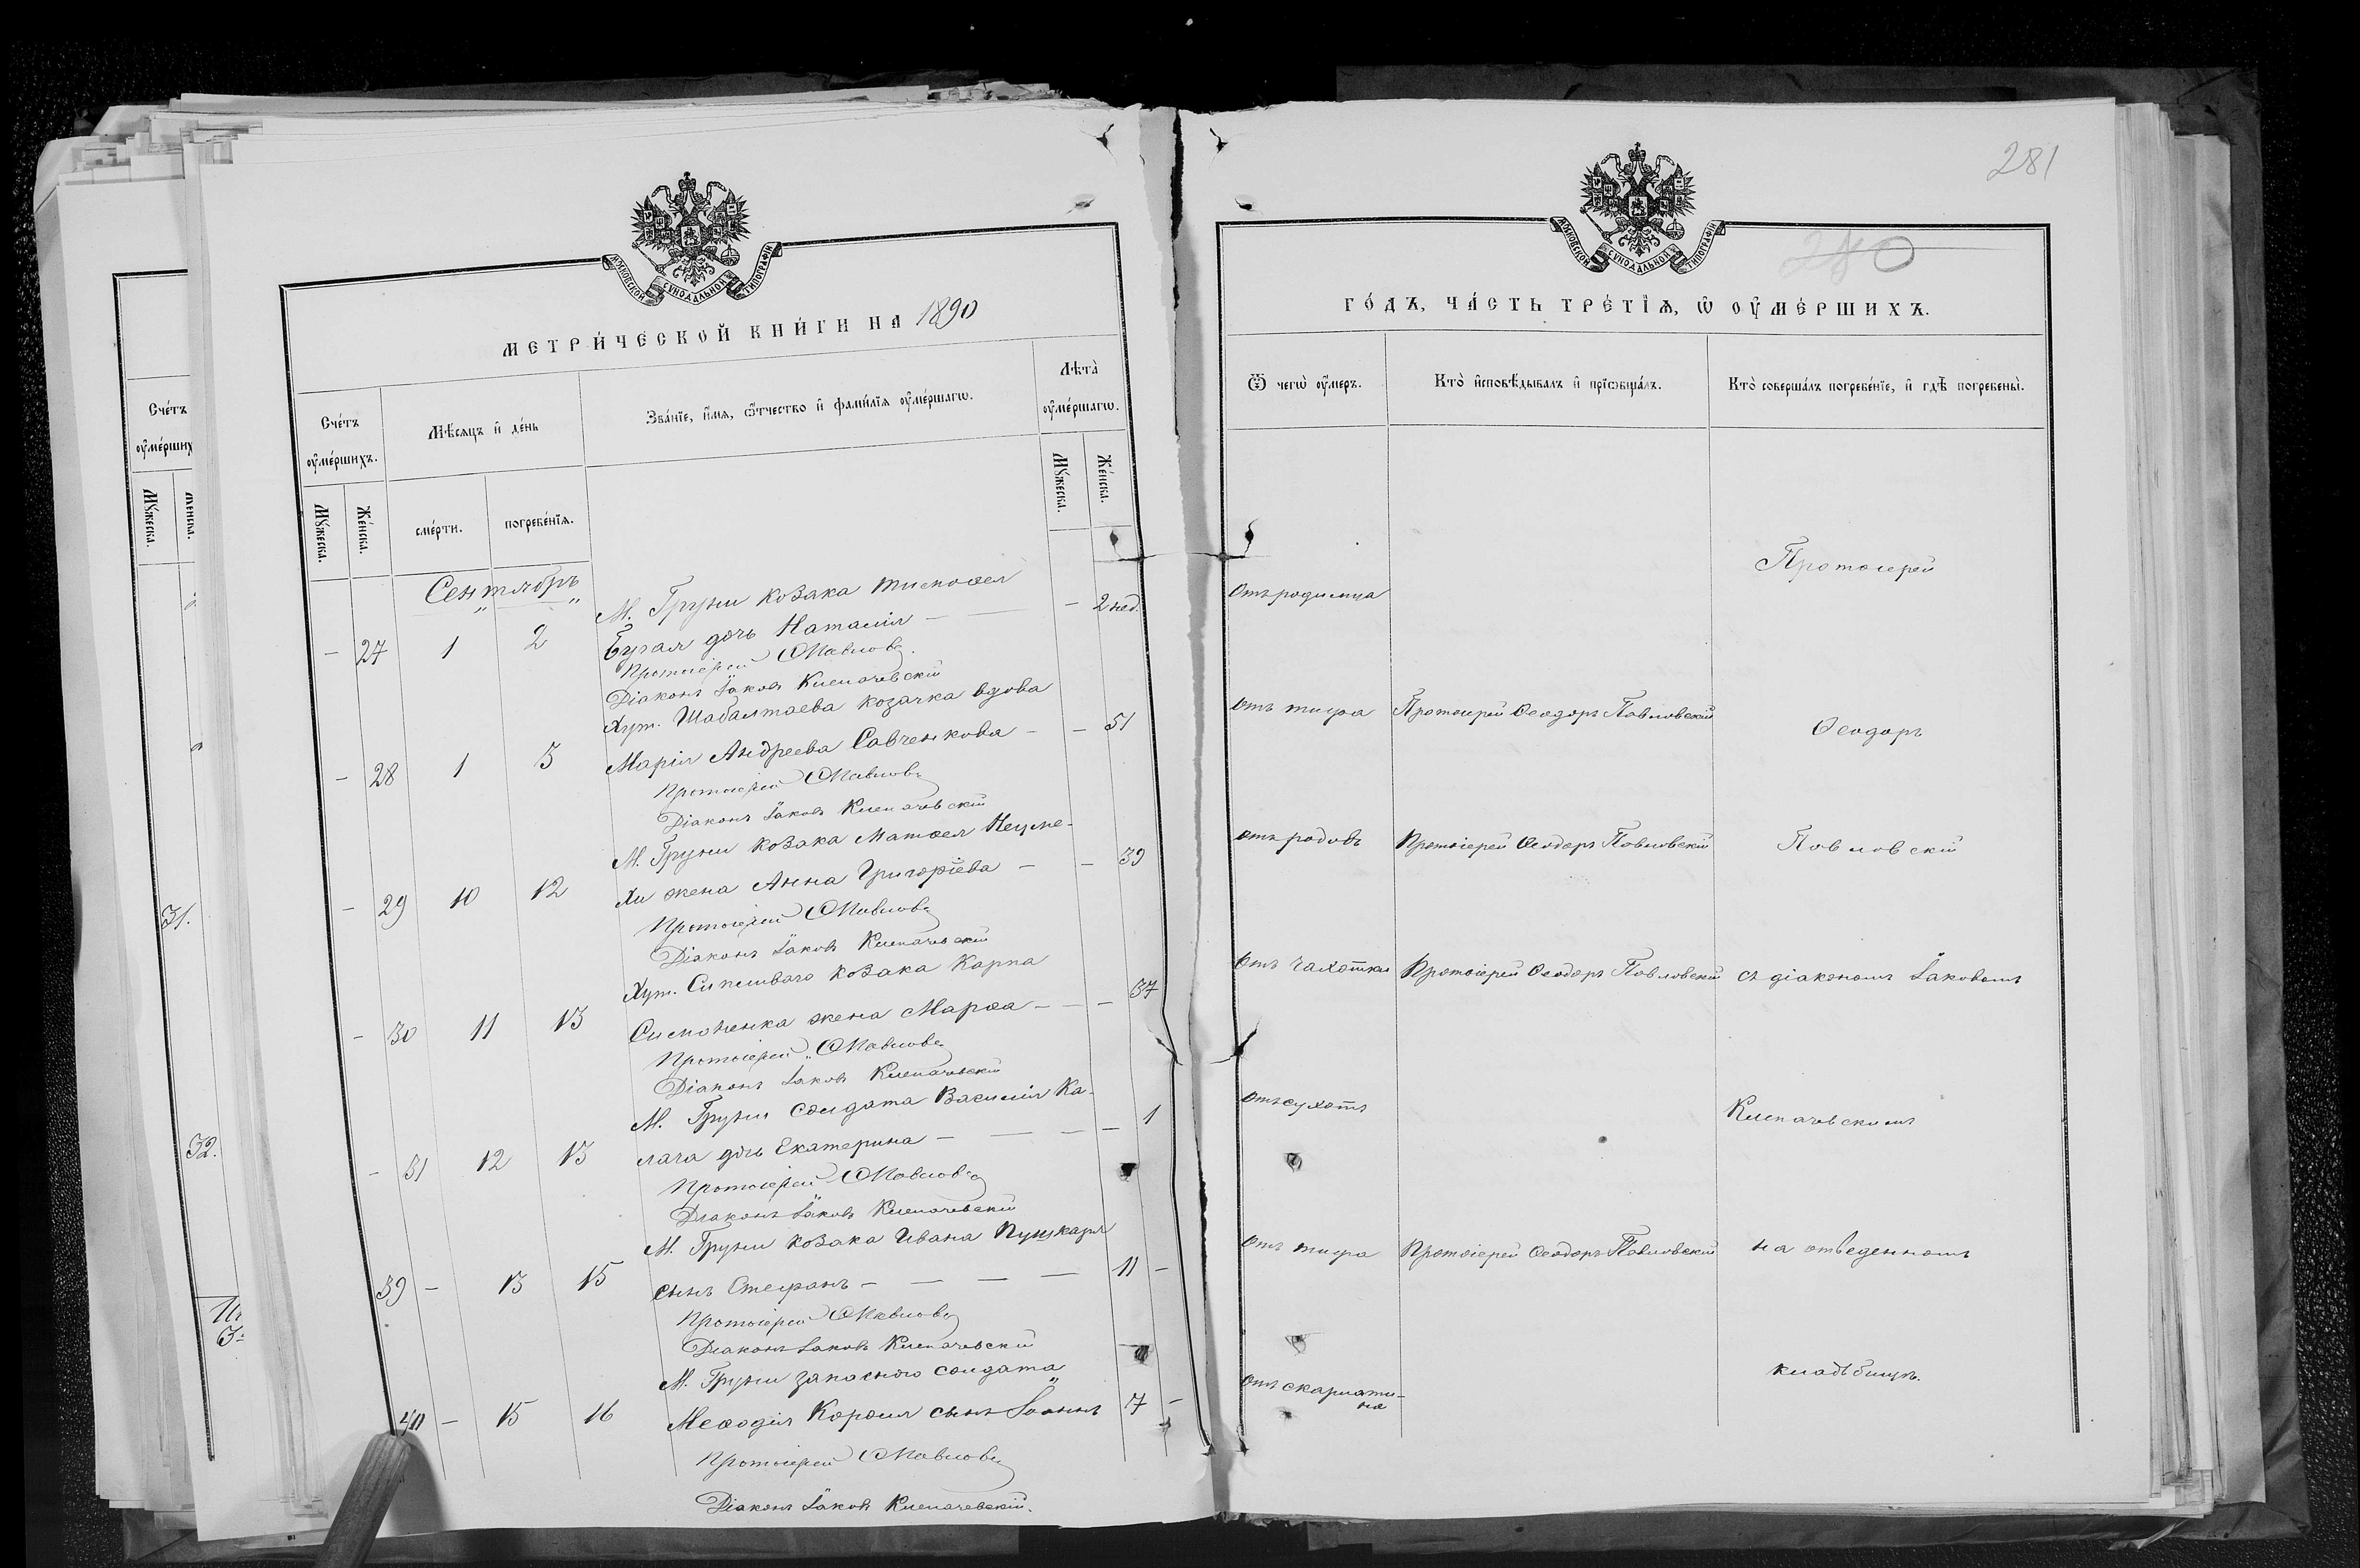 Счетъ
оумерших
Мужеска.
Женска.
31.
32.
МОСКОВСКОЙ СУНОДАЛЬНОЙ ТИПОГРАФІИ
МЕТРИЧЕСКОЙ КНИГИ НА 1890
Счетъ оумершихъ.
Мѣсяцъ и день
Званіе, имя, отчество и фамилія оумершагѡ.
Лѣта оумершагѡ.
Мужеска.
Женска.
смерти.
погребенія.
Мужеска.
Женска.
Сентябрь
М. Груни козака Тимоѳея
— 27 1 2 Бугая дочь Наталія — — 2 нед.
Протоіерей Ѳ Павловс
Діаконъ Іаковъ Клепачевскій
Хут. Шабалтаева козачка вдова
— 28 1 3 Марія Андреева Савченкова — — 51
Протоіерей Ѳ Павловс
Діаконъ Іаковъ Клепачевскій
М. Груни козака Матѳея
— 29 10 12 жена Анна Григоріева — — 39
Протоіерей Ѳ Павловс
Діаконъ Іаковъ Клепачевскій
Хут. козака Карпа
— 30 11 13 Симоненка жена Марѳа — — — 37
Протоіерей Ѳ Павловс
Діаконъ Іаковъ Клепачевскій
М. Груни солдата Василія Ка-
— 31 12 13 лача дочь Екатерина — — — — 1
Протоіерей Ѳ Павловс
Діаконъ Іаковъ Клепачевскій
М. Груни козака Ивана Пушкаря
39 — 13 15 сынъ Стефанъ — — — — 11 —
Протоіерей Ѳ Павловс
Діаконъ Іаковъ Клепачевскій
М. Груни запасного солдата
40 — 15 16 Меѳодія сынъ Іоаннъ 7 —
Протоіерей Ѳ Павловс
Діаконъ Іаковъ Клепачевскій.
281
МОСКОВСКОЙ СУНОДАЛЬНОЙ ТИПОГРАФІИ
280
ГОДЪ, ЧАСТЬ ТРЕТІЯ, Ѡ ОУМЕРШИХЪ.
Ѿ чегѡ оумеръ.
Кто исповѣдывалъ и пріѡбщалъ.
Кто совершалъ погребеніе, и гдѣ погребены.
Протоіерей
отъ родимца
отъ тифа Протоіерей Ѳеодоръ Павловскій
Ѳеодоръ
отъ родовъ Протоіерей Ѳеодоръ Павловскій Павловскій
отъ чахотки Протоіерей Ѳеодоръ Павловскій съ діакономъ Іаковомъ
отъ сухотъ
Клепачевскимъ
отъ тифа Протоіерей Ѳеодоръ Павловскій на отведенномъ
кладбищѣ.
отъ скарлати-
на